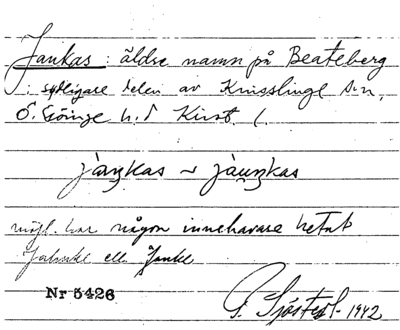 Jankas : äldre namn på Beateberg
i sydligare delen av Knisslinge s:n,
Ö. Göinge h.d Krist l.
jàŋkas ~ jàuŋkas
möjl. har någon innehavare hetat
Jahnke ell. Janke
Nr 5426
G. Sjöstedt 1942